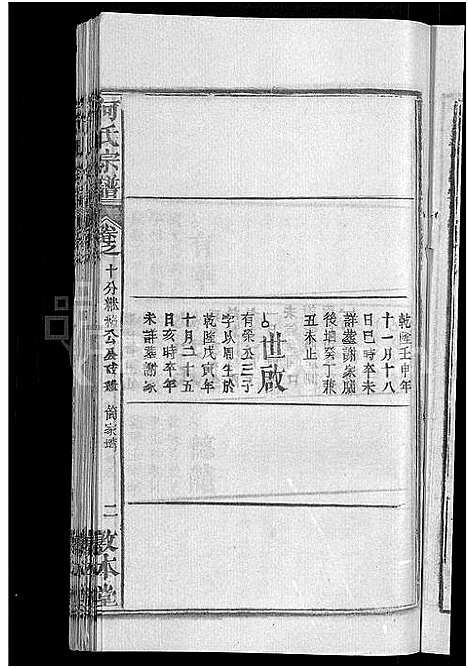 乾隆壬申年
十一月十八
日巳時卒未
詳墓謝家廠
後塆癸丁兼
丑未山
世啟
有梁公三子
字以周生於
乾隆戊寅年
十月二十五
日亥時卒年
未詳墓謝家
何氏宗譜
卷之
十分
二
敦本堂